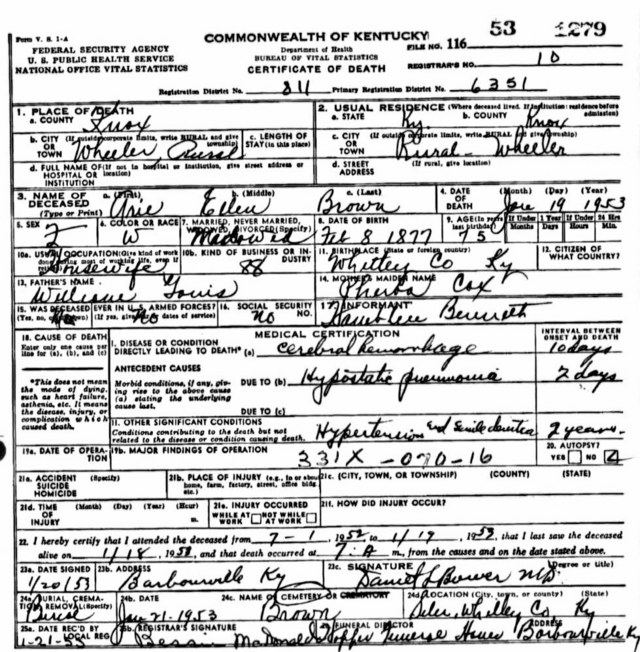 Form V. S. 1-A
COMMONWEALTH OF KENTUCKY
53 1279
FEDERAL SECURITY AGENCY
U. S. PUBLIC HEALTH SERVICE
NATIONAL OFFICE VITAL STATISTICS
Department of Health
BUREAU OF VITAL STATISTICS
CERTIFICATE OF DEATH
FILE NO. 116
REGISTRAR'S NO. 10
Registration District No. 811 Primary Registration District No. 6351
1. PLACE OF DEATH
a. COUNTY Knox
2. USUAL RESIDENCE (Where deceased lived. If institution: residence before admission)
a. STATE Ky. b. COUNTY Knox
b. CITY (If outside corporate limits, write RURAL and give township)
OR TOWN Wheeler, Rural
c. LENGTH OF STAY (in this place)
c. CITY (If outside corporate limits, write RURAL and give township)
OR TOWN Rural - Wheeler
d. FULL NAME OF (If not in hospital or institution, give street address or location)
HOSPITAL OR INSTITUTION
d. STREET ADDRESS (If rural, give location)
3. NAME OF DECEASED (Type or Print)
a. (First) b. (Middle) Ellen c. (Last) Brown
4. DATE OF DEATH (Month) (Day) (Year) Jan 19 1953
5. SEX F
6. COLOR OR RACE W
7. MARRIED, NEVER MARRIED, WIDOWED, DIVORCED (Specify) Widowed
8. DATE OF BIRTH Feb 8 1877
9. AGE (In years last birthday) 75
If Under 1 Year Months Days If Under 24 Hrs Hours Min.
10a. USUAL OCCUPATION (Give kind of work done during most of working life, even if retired) Housewife
10b. KIND OF BUSINESS OR INDUSTRY 88
11. BIRTHPLACE (State or foreign country) Whitley Co Ky
12. CITIZEN OF WHAT COUNTRY?
13. FATHER'S NAME William
14. MOTHER'S MAIDEN NAME Cox
15. WAS DECEASED EVER IN U. S. ARMED FORCES?
(Yes, no, or unknown) (If yes, give war or dates of service) No No
16. SOCIAL SECURITY NO. No
17. INFORMANT
18. CAUSE OF DEATH
Enter only one cause per line for (a), (b), and (c)
MEDICAL CERTIFICATION
INTERVAL BETWEEN ONSET AND DEATH
I. DISEASE OR CONDITION
DIRECTLY LEADING TO DEATH* (a) Cerebral hemorrhage 10 days
*This does not mean the mode of dying, such as heart failure, asthenia, etc. It means the disease, injury, or complication which caused death.
ANTECEDENT CAUSES
Morbid conditions, if any, giving rise to the above cause (a) stating the underlying cause last.
DUE TO (b) Hypostatic pneumonia 2 days
DUE TO (c)
II. OTHER SIGNIFICANT CONDITIONS
Conditions contributing to the death but not related to the disease or condition causing death.
Hypertension and Senile dementia 2 years
19a. DATE OF OPERATION
19b. MAJOR FINDINGS OF OPERATION
331X-070-16
20. AUTOPSY?
YES NO 4
21a. ACCIDENT SUICIDE HOMICIDE (Specify)
21b. PLACE OF INJURY (e.g., in or about home, farm, factory, street, office bldg., etc.)
21c. (CITY, TOWN, OR TOWNSHIP) (COUNTY) (STATE)
21d. TIME OF INJURY (Month) (Day) (Year) (Hour) m.
21e. INJURY OCCURRED
WHILE AT WORK NOT WHILE AT WORK
21f. HOW DID INJURY OCCUR?
22. I hereby certify that I attended the deceased from 7-1, 1952, to 1/19, 1953, that I last saw the deceased
alive on 1/18, 1953, and that death occurred at 7:A m., from the causes and on the date stated above.
23a. DATE SIGNED 1/20/53
23b. ADDRESS Barbourville Ky
23c. SIGNATURE (Degree or title) Daniel L Bower MD
24a. BURIAL, CREMATION, REMOVAL (Specify) Burial
24b. DATE Jan-21-1953
24c. NAME OF CEMETERY OR CREMATORY Brown
24d. LOCATION (City, town, or county) (State) Siler, Whitley Co Ky
25a. DATE REC'D BY LOCAL REG. 1-21-53
25b. REGISTRAR'S SIGNATURE Bessie McDonald
26. FUNERAL DIRECTOR ADDRESS Hopper Funeral Home Barbourville Ky